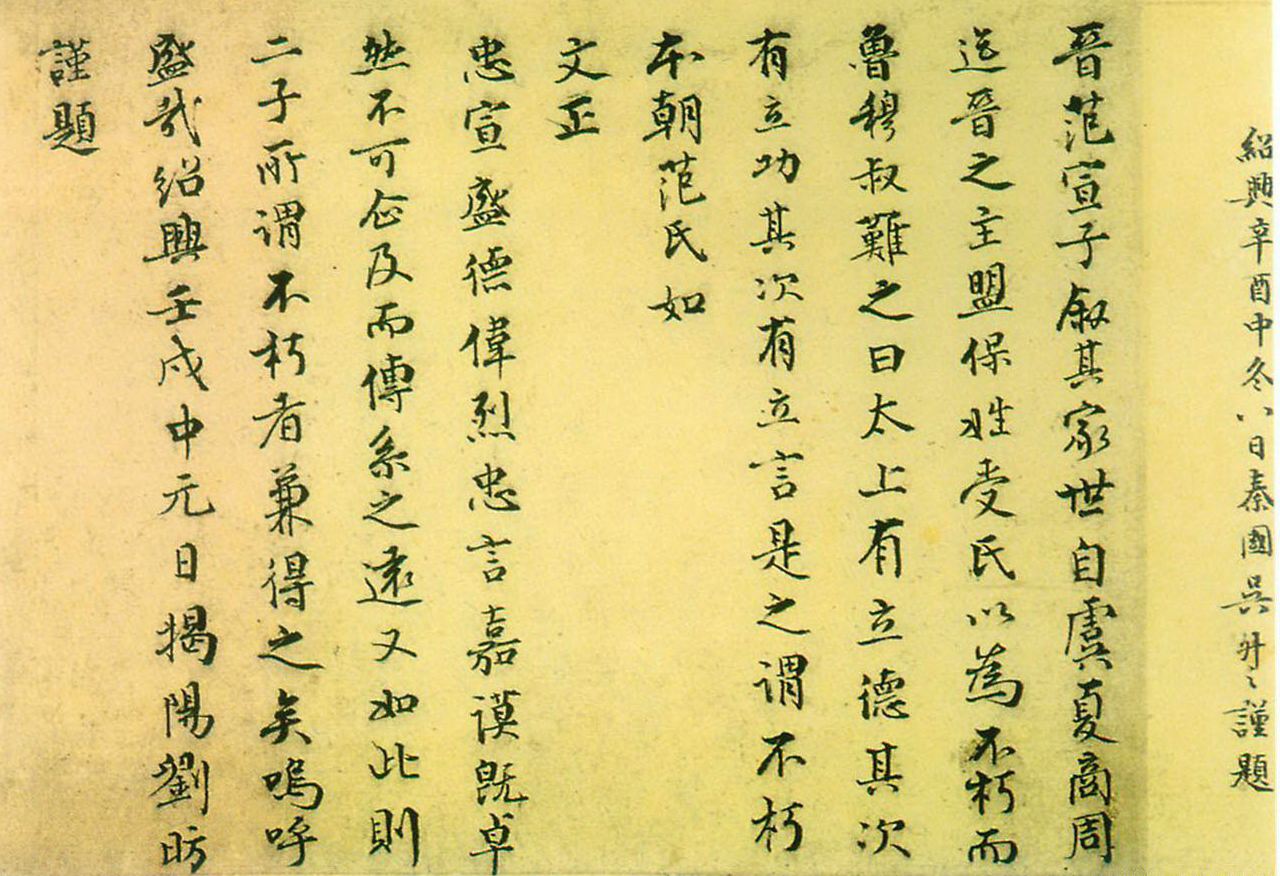 紹興辛酉中冬八日秦國吳謹題
晉范宣子叙其家世自虞夏商周
迄晉之主盟保姓受氏以為不朽而
魯穆叔難之曰太上有立德其次
有立功其次有立言是之謂不朽
本朝范氏如
文正
忠宣盛德偉烈忠言嘉謨既卓
然不可企及而傳系之遠又如此則
二子所謂不朽者兼得之矣嗚呼
盛哉紹興壬戌中元日揭陽劉昉
謹題